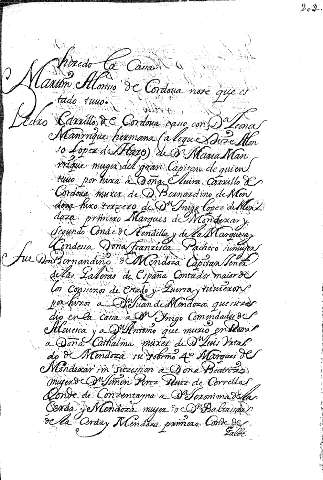 202
heredo la Casa
Martin Alonso de Cordoua note que es
tado tuuo.
Pedro Carrillo de Cordoua caso con Dª Leonor
Manrrique hermana (
so Lopez de) de Dª Maria Man
rrique muger del gran Capitan de quien
tuuo por hixa a Doña Eluira Carrillo de
Cordoua muxer de D Bernardino de Men
doza hixo terzero de Dn Inigo Lopez de Men
doza primero Marques de Mondexar y
segundo Conde de Tendilla y de la Marquesa
Condesa Doña Francisca Pacheco
fue Don Bernardino de Mendoza Capitan General
de las Galeras de España Contador maior de
los Consexos de estado y Guerra, y tuuieron
por hixos a Dn Juan de Mendoza que suze
dio en la casa a Dn Inigo Comendador de
y a Dn Antonio que murio
a Doña Cathalina muxer de Dn Luis Hurta
do de Mendoza su sobrino 4º Marques de
Mondexar sin suzession a Doña Beatriz
muger de Dn Simon Perez Ruiz de Corrella
Conde de Conzentayna a Dª Jeronima de la
Cerda y Mendoza muger de Dn Baltasar
de la Cerda y Mendoza primero Conde de
Galue